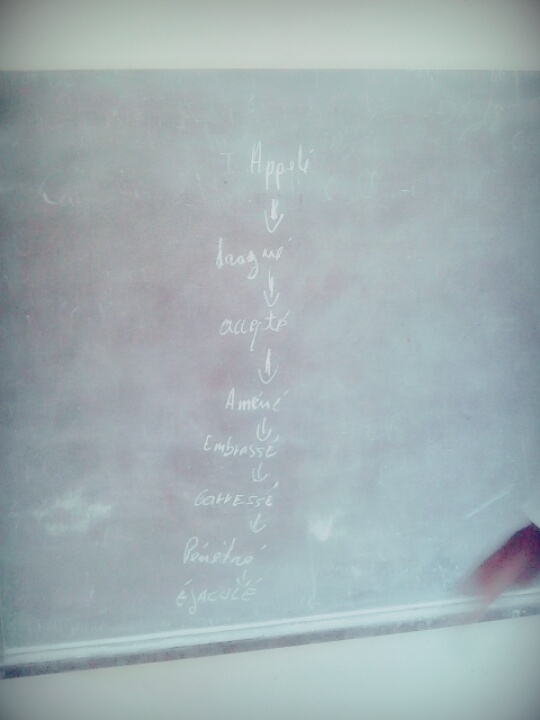 I Appelé
↓
dragué
↓
accepté
↓
Améné
↓
Embrassé
↓
Carressé
↓
Pénétré
↓
éJACULÉ